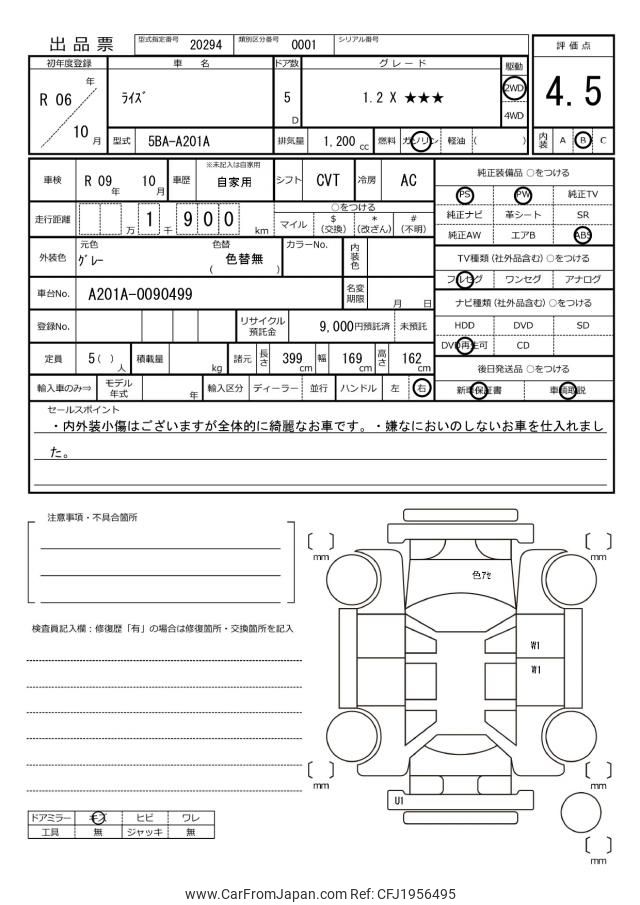 出品票 型式指定番号 20294 類別区分番号 0001 シリアル番号
評価点
4.5
内装 A B C
初年度登録 車名 ドア数 グレード 駆動
R 06 年 10 月 ﾗｲｽﾞ 5 D 1.2 X ★★★ 2WD 4WD
型式 5BA-A201A 排気量 1,200 cc 燃料 ガソリン 軽油 ( )
車検 R 09 年 10 月 車歴 ※未記入は自家用 自家用 シフト CVT 冷房 AC
走行距離 万 1 千 9 0 0 km ○をつける
マイル $ (交換) * (改ざん) # (不明)
外装色 元色 ｸﾞﾚｰ 色替 ( 色替無 ) カラーNo. 内装色
車台No. A201A-0090499 名変期限 月 日
登録No. リサイクル預託金 9,000円預託済 未預託
定員 5( ) 人 積載量 kg 諸元 長さ 399 cm 幅 169 cm 高さ 162 cm
輸入車のみ⇒ モデル年式 年 輸入区分 ディーラー 並行 ハンドル 左 右
純正装備品 ○をつける
PS PW 純正TV
純正ナビ 革シート SR
純正AW エアB ABS
TV種類 (社外品含む) ○をつける
フルセグ ワンセグ アナログ
ナビ種類 (社外品含む) ○をつける
HDD DVD SD
DVD再生可 CD
後日発送品 ○をつける
新車保証書 車輌取説
セールスポイント
・内外装小傷はございますが全体的に綺麗なお車です。・嫌なにおいのしないお車を仕入れまし
た。
注意事項・不具合箇所
検査員記入欄：修復歴「有」の場合は修復箇所・交換箇所を記入
ドアミラー キズ ヒビ ワレ
工具 無 ジャッキ 無
mm mm
色ｱｾ
W1
W1
mm mm
U1
mm
www.CarFromJapan.com Ref: CFJ1956495